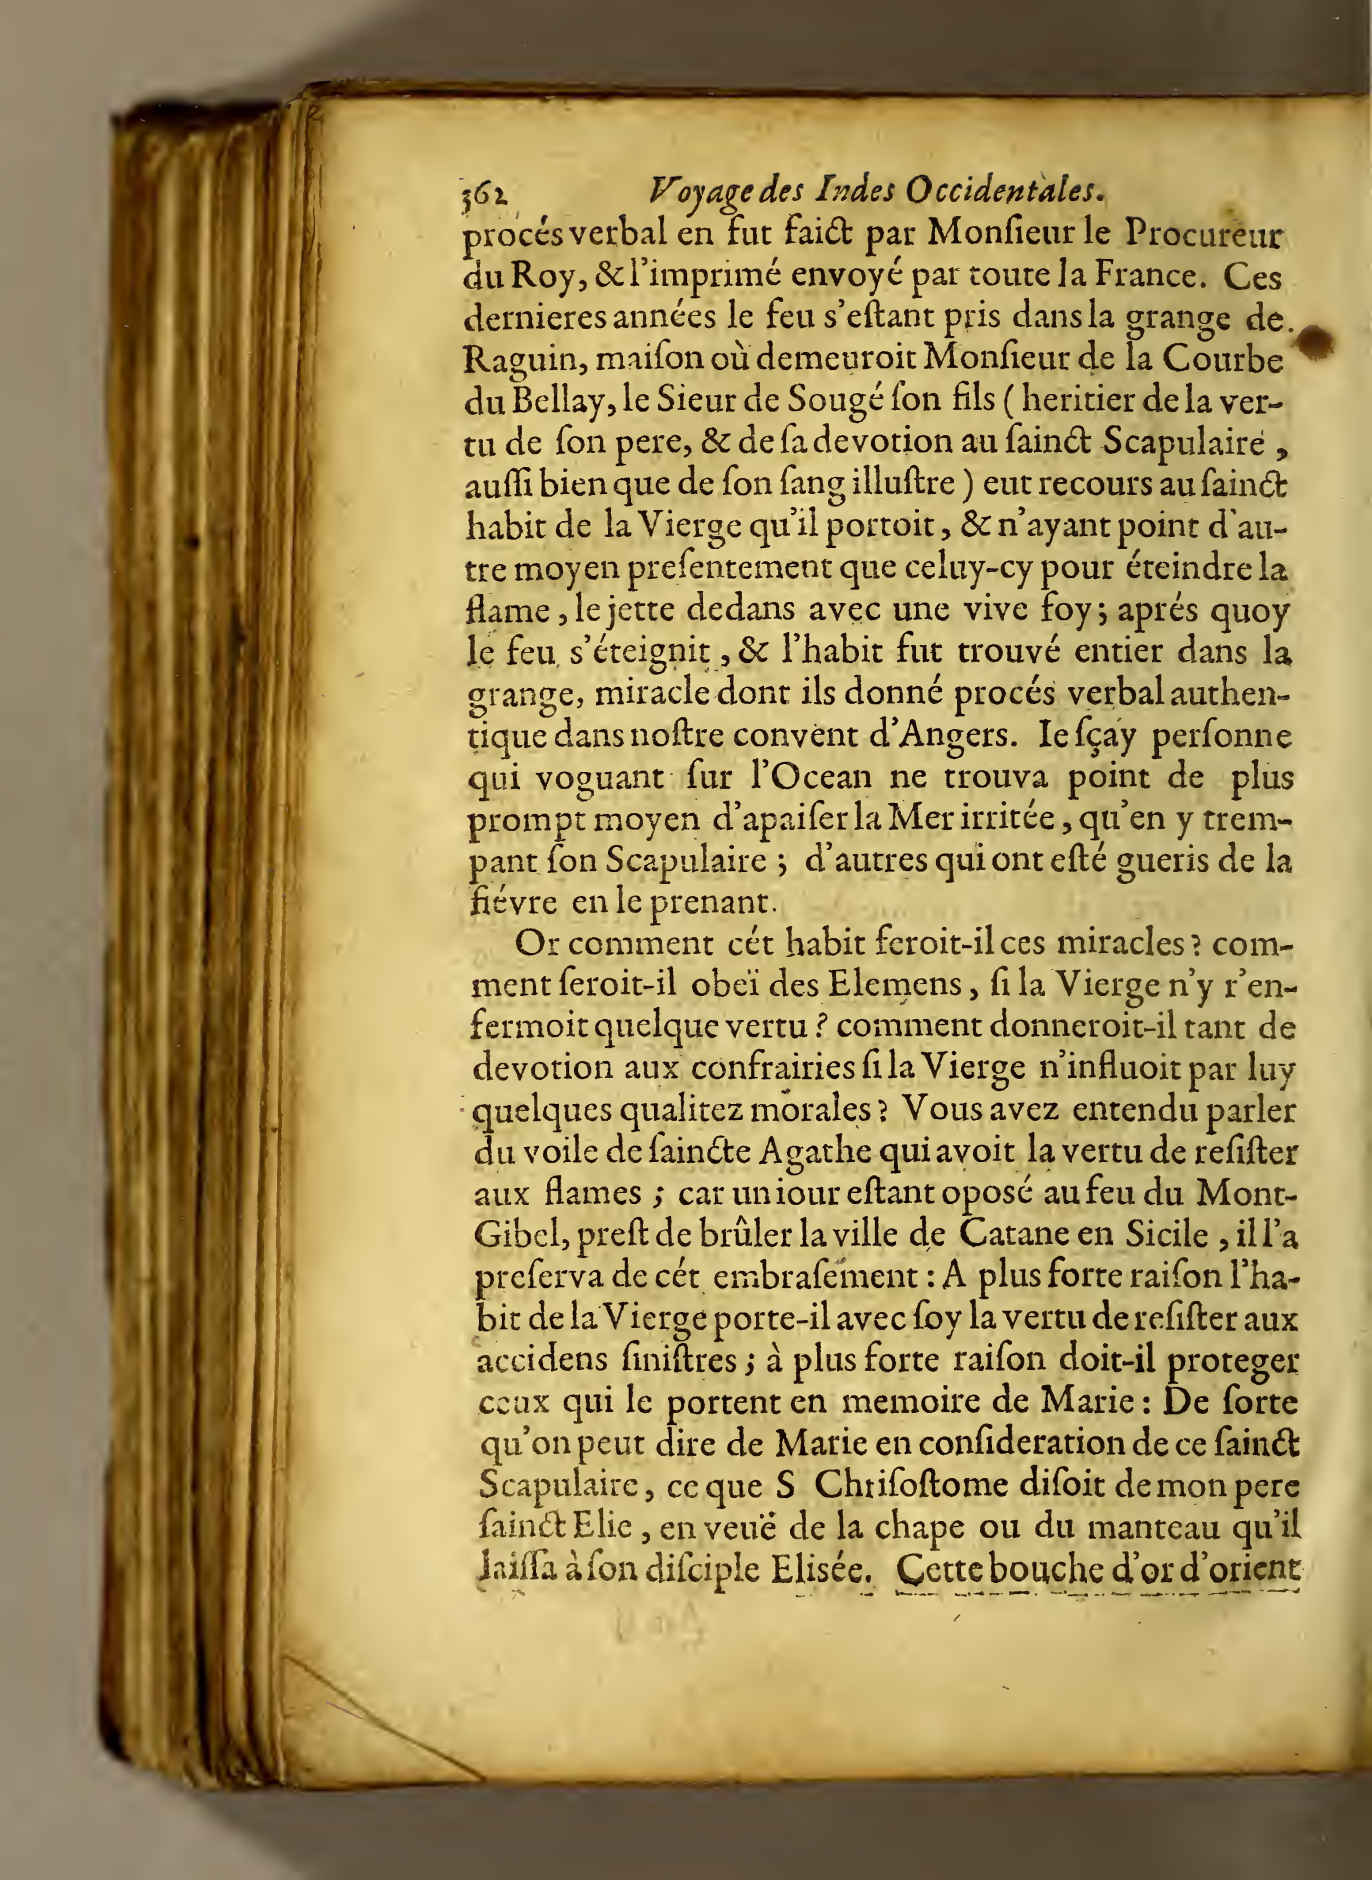 362 Voyage des Indes Occidentales.
procés verbal en fut faict par Monſieur le Procureur
du Roy, & l'imprimé envoyé par toute la France. Ces
dernieres années le feu s'eſtant pris dans la grange de
Raguin, maiſon où demeuroit Monſieur de la Courbe
du Bellay, le Sieur de Sougé ſon fils ( heritier de la ver-
tu de ſon pere, & de ſa devotion au ſainct Scapulaire,
auſſi bien que de ſon ſang illuſtre ) eut recours au ſainct
habit de la Vierge qu'il portoit, & n'ayant point d'au-
tre moyen preſentement que celuy-cy pour éteindre la
flame, le jette dedans avec une vive foy; aprés quoy
le feu s'éteignit, & l'habit fut trouvé entier dans la
grange, miracle dont ils donné procés verbal authen-
tique dans noſtre convent d'Angers. Ie ſçay perſonne
qui voguant ſur l'Ocean ne trouva point de plus
prompt moyen d'apaiſer la Mer irritée, qu'en y trem-
pant ſon Scapulaire ; d'autres qui ont eſté gueris de la
fiévre en le prenant.
Or comment cét habit feroit-il ces miracles ? com-
ment ſeroit-il obeï des Elemens, ſi la Vierge n'y r'en-
fermoit quelque vertu ? comment donneroit-il tant de
devotion aux confrairies ſi la Vierge n'influoit par luy
quelques qualitez morales ? Vous avez entendu parler
du voile de ſaincte Agathe qui avoit la vertu de reſiſter
aux flames ; car un iour eſtant oposé au feu du Mont-
Gibel, preſt de brûler la ville de Catane en Sicile, il l'a
preſerva de cét embraſement : A plus forte raiſon l'ha-
bit de la Vierge porte-il avec ſoy la vertu de reſiſter aux
accidens ſiniſtres ; à plus forte raiſon doit-il proteger
ceux qui le portent en memoire de Marie : De ſorte
qu'on peut dire de Marie en conſideration de ce ſainct
Scapulaire, ce que S Chriſoſtome diſoit de mon pere
ſainct Elie, en veuë de la chape ou du manteau qu'il
laiſſa à ſon diſciple Elisée. Cette bouche d'or d'orient